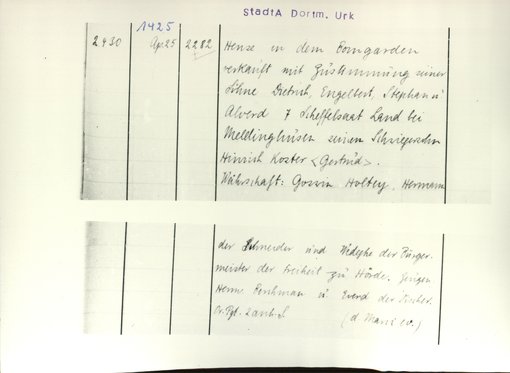 StadtA Dortm. Urk
1425
2430 Apr 25 2282 Hense in dem Bomgarden
verkauft mit Zustimmung seiner
Söhne Dietrich, Engelbert, Stephan u
Alverd 7 Scheffelsaat Land bei
Meldinghusen seinem
Hinrich Koster <Gertrud>.
Währschaft: Goswin Holtey, Hermann
der Schneider und Wideghe der Bürger-
meister der Freiheit zu Hörde. Zeugen
Herm. u. Everd der Fischer.
Or. Pgt. 2 anh. S.